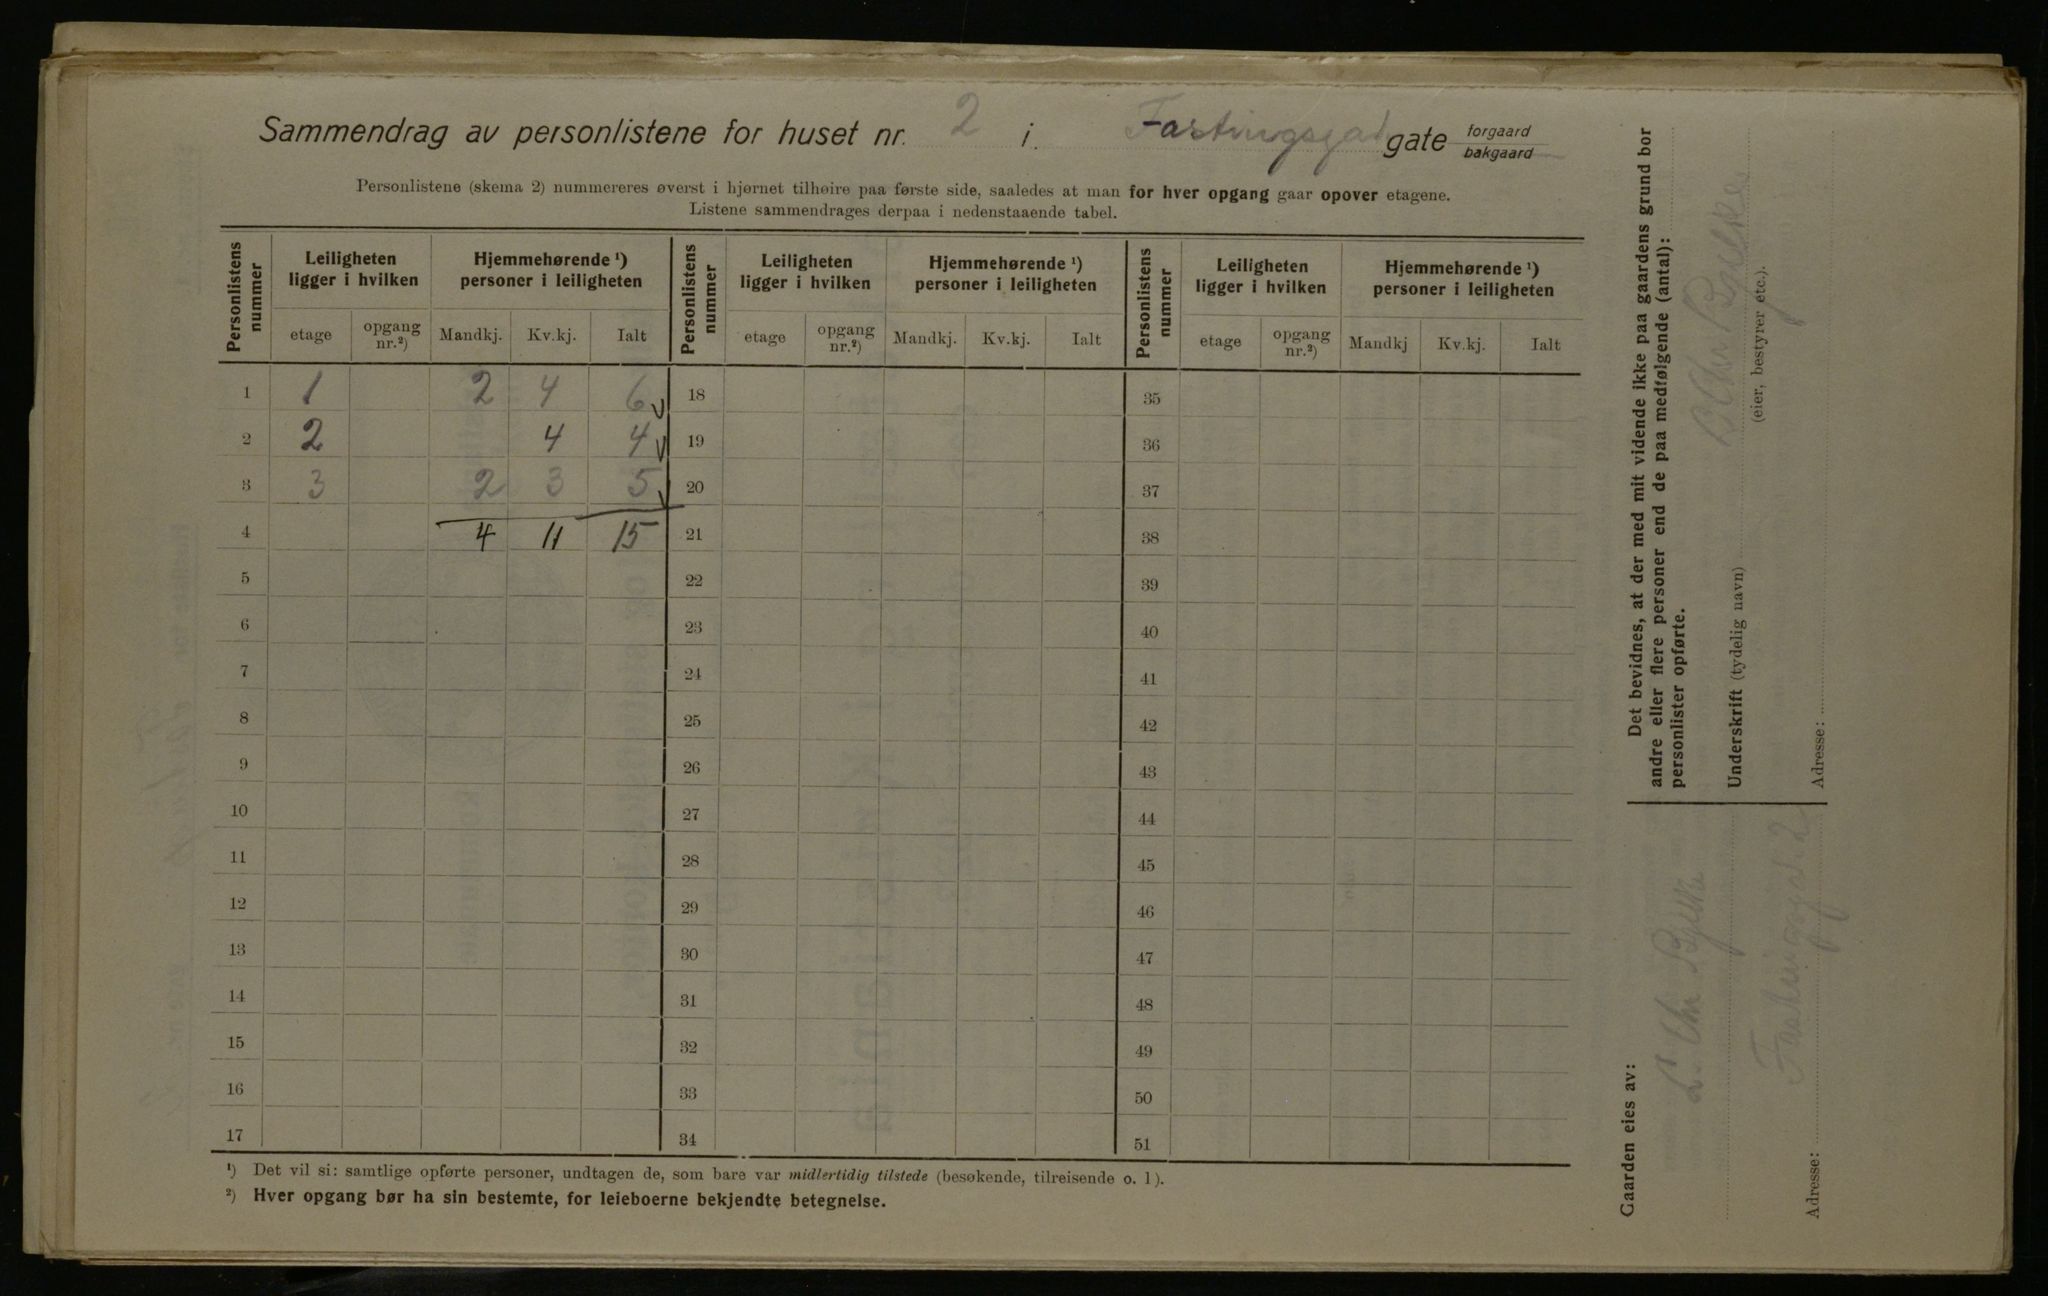 Sammendrag av personlistene for huset nr. 2 i Fastingsgad gate forgaard bakgaard
Personlistene (skema 2) nummereres øverst i hjørnet tilhøire paa første side, saaledes at man for hver opgang gaar opover etagene.
Listene sammendrages derpaa i nedenstaaende tabel.
Personlistens nummer
Leiligheten ligger i hvilken
etage
opgang nr.²)
Hjemmehørende ¹) personer i leiligheten
Mandkj.
Kv.kj.
Ialt
Personlistens nummer
Leiligheten ligger i hvilken
etage
opgang nr.²)
Hjemmehørende ¹) personer i leiligheten
Mandkj.
Kv.kj.
Ialt
Personlistens nummer
Leiligheten ligger i hvilken
etage
opgang nr.²)
Hjemmehørende ¹) personer i leiligheten
Mandkj
Kv.kj.
Ialt
1 1 2 4 6 18 35
2 2 4 4 19 36
3 3 2 3 5 20 37
4 4 11 15 21 38
5 22 39
6 23 40
7 24 41
8 25 42
9 26 43
10 27 44
11 28 45
12 29 46
13 30 47
14 31 48
15 32 49
16 33 50
17 34 51
¹) Det vil si: samtlige opførte personer, undtagen de, som bare var midlertidig tilstede (besøkende, tilreisende o. l).
²) Hver opgang bør ha sin bestemte, for leieboerne bekjendte betegnelse.
Det bevidnes, at der med mit vidende ikke paa gaardens grund bor
andre eller flere personer end de paa medfølgende (antal):
personlister opførte.
Underskrift (tydelig navn)
(eier, bestyrer etc.).
Adresse:
Gaarden eies av:
Chr
Adresse: Fastingsgd. 2